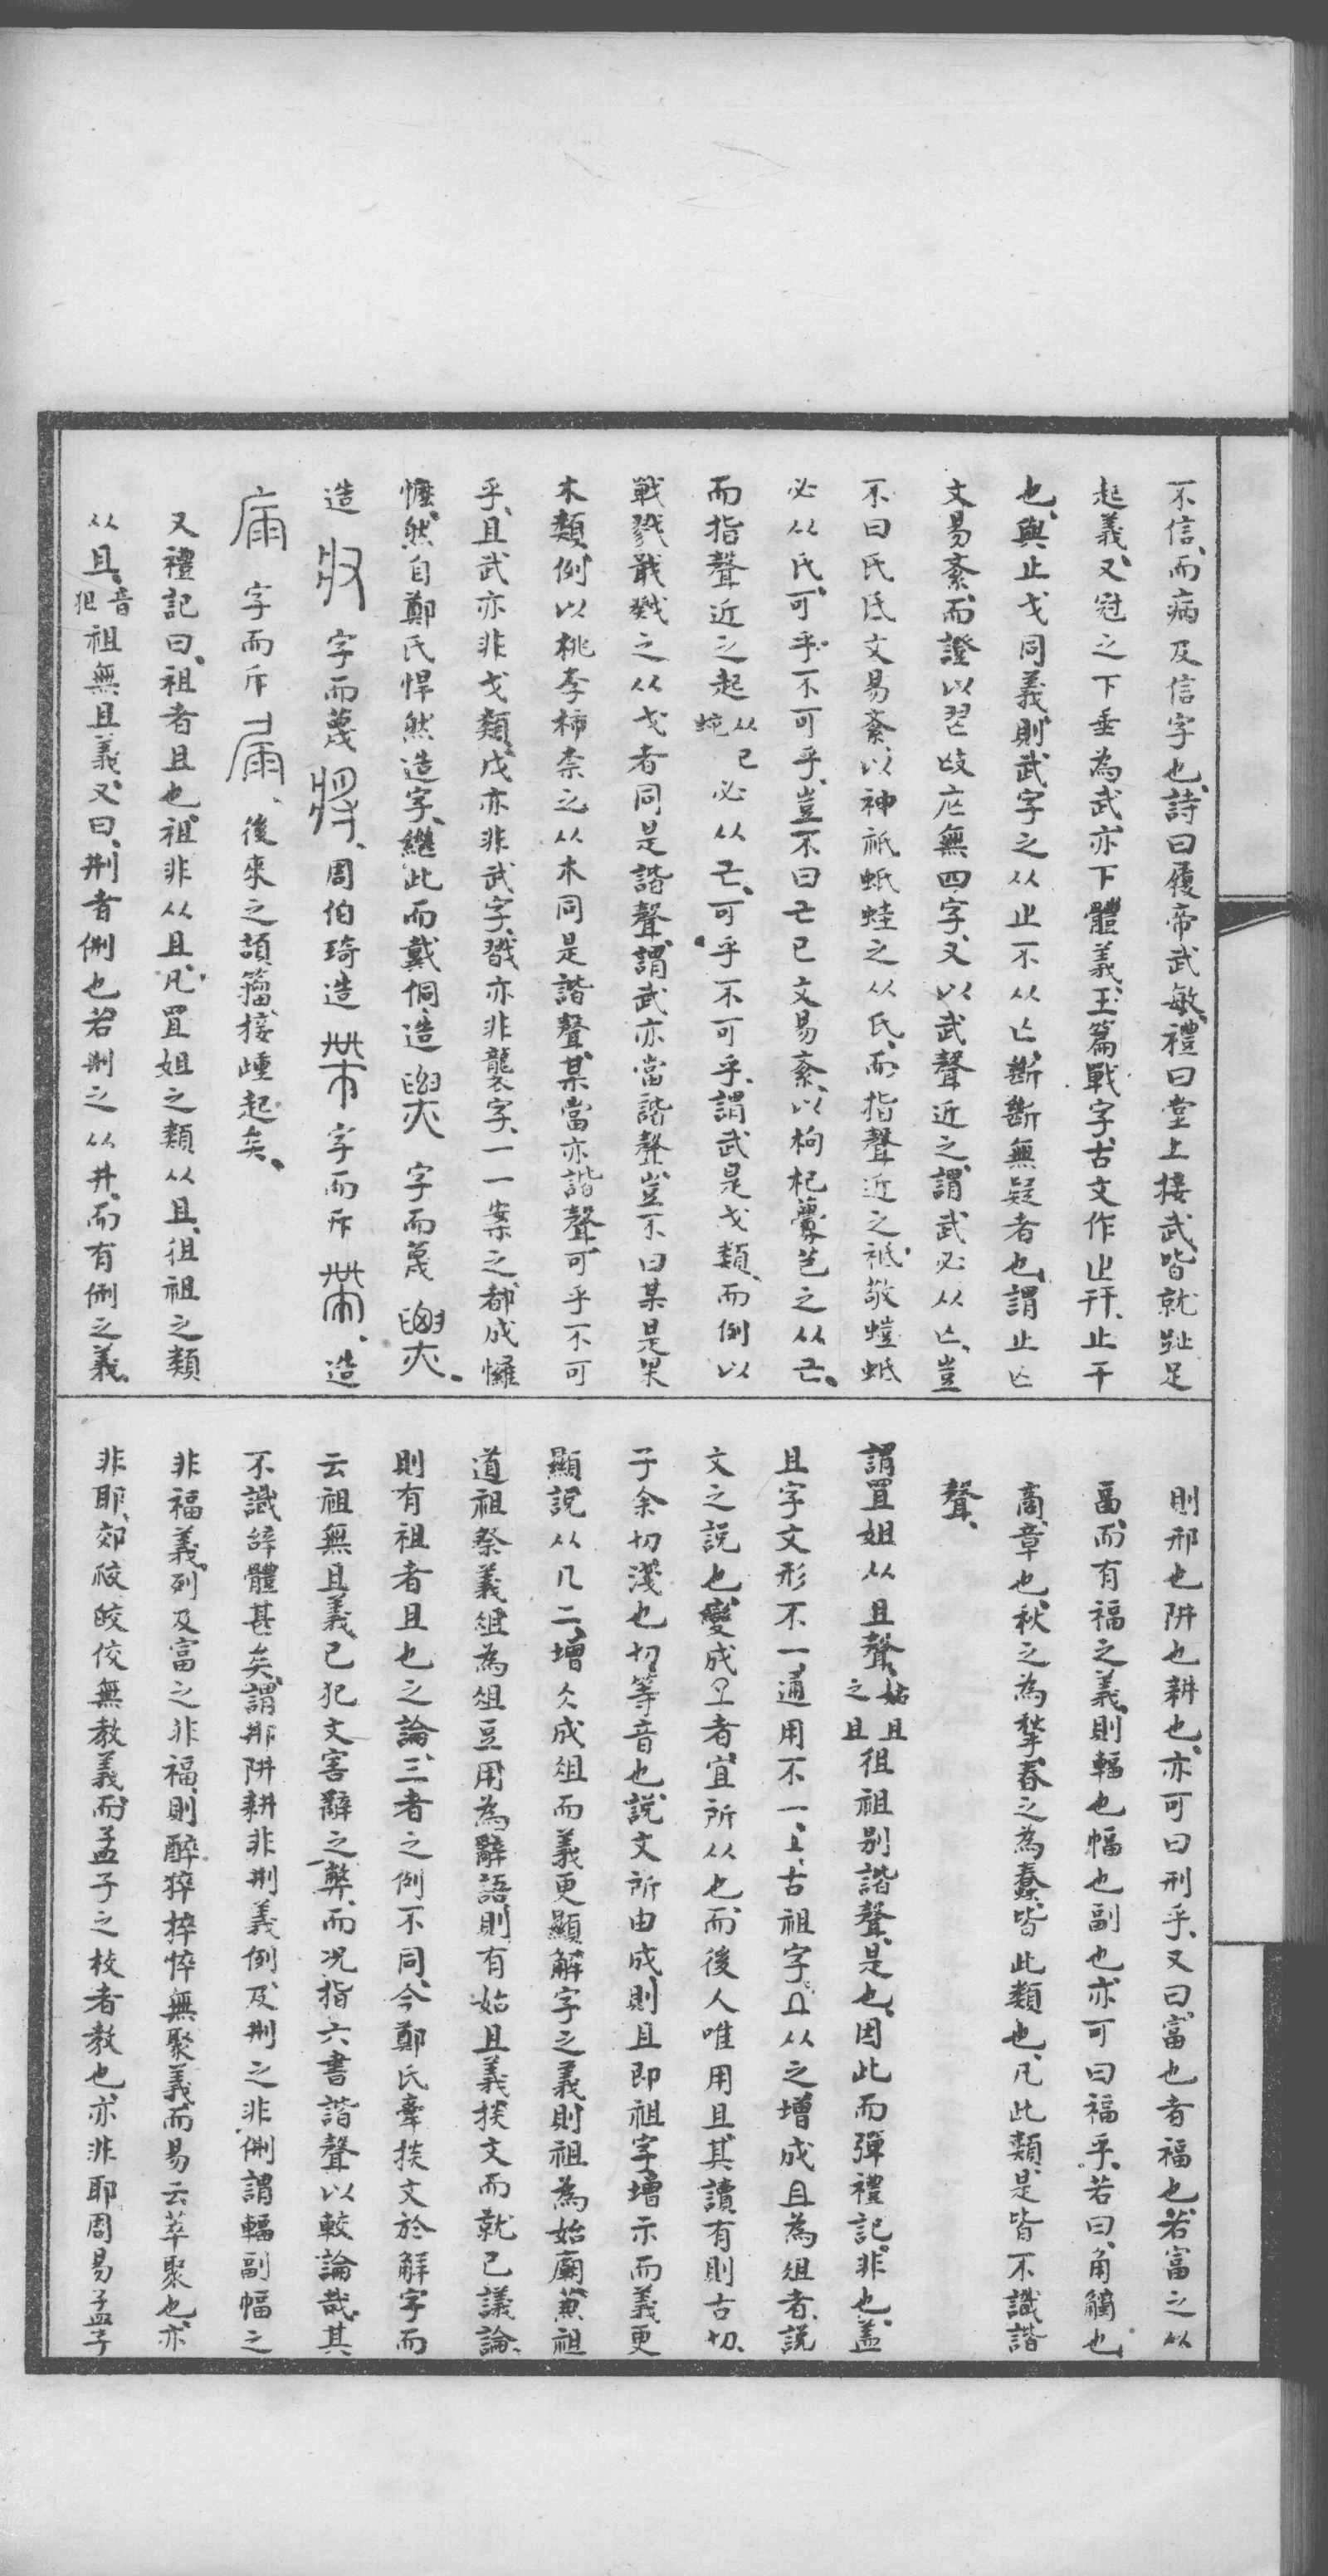 不信、而病及信字也、詩曰履帝武敏、禮曰堂上接武、皆就趾足
起義、又冠之下垂為武、亦下體義、玉篇戰字、古文作止幵、止干
也、與止戈同義、則武字之从止不从亾、斷斷無疑者也、謂止亾
文易紊、而證以無四字、又以武聲近之、謂武必从亾、豈
不曰氏氐文易紊、以神祇蚔蛙之从氏、而指聲近之祗敬螘蚳
必从氏、可乎、不可乎、豈不曰亡已文易紊、以枸杞之从亡、
而指聲近之起从巳必从亡、可乎不可乎、謂武是戈類、而例以
戰戮戢戣之从戈者同是諧聲、謂武亦當諧聲、豈不曰某是果
木類、例以桃李柿柰之从木同是諧聲、某當亦諧聲、可乎不可
乎、且武亦非戈類、戊亦非武字、戳亦非襲字、一一案之、都成㦬
㦬、然自鄭氏悍然造字、繼此而戴侗、造字而蔑
造字而蔑、周伯琦造字而斥、造
字而斥、後來之頡籀、接踵起矣、
又禮記曰、祖者且也、祖非从且、凡罝姐之類从且、徂祖之類
从且、音狙祖無且義、又曰、刑者侀也、若刑之从井、而有侀之義、
則邢也阱也耕也、亦可曰刑乎、又曰、富也者福也、若富之从
畐、而有福之義、則輻也幅也副也、亦可曰福乎、若曰、角觸也
商章也、秋之為揫、春之為蠢、皆此類也、凡此類是皆不識諧
聲、
謂罝姐从且聲、姑且之且徂祖别諧聲、是也、因此而彈禮記、非也、蓋
且字文形不一、通用不一、古祖字、从之增成且為俎者、說
文之說也、變成者、宜所从也、而後人唯用且、其讀有則古切、
子余切淺也切等音也、說文所由成、則且即祖字、增示而義更
顯、說从几二、增仌成俎而義更顯、解字之義、則祖為始廟、兼祖
道祖祭義、俎為俎豆、用為辭語、則有姑且義、挨文而就已議論、
則有祖者且也之論、三者之例不同、今鄭氏牽挨文於解字而
云祖無且義、已犯文害辭之弊、而况指六書諧聲以較論哉、其
不識辭體甚矣、謂邢阱耕非刑義例、及刑之非侀、謂輻副幅之
非福義列、及富之非福、則醉猝捽悴無聚義、而易云萃聚也、亦
非耶、郊絞皎佼無教義、而孟子之校者教也、亦非耶、周易孟子